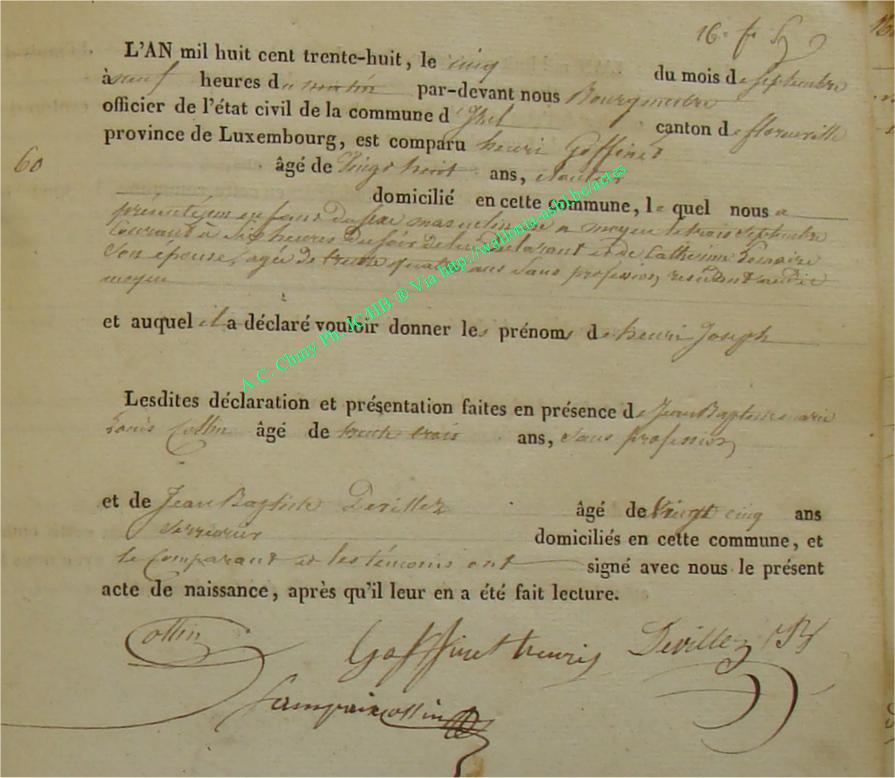 16. f.
L'AN mil huit cent trente-huit, le cinq du mois de septembre
à neuf heures du matin par-devant nous Bourgmestre
officier de l'état civil de la commune d'Izel canton de florenville
province de Luxembourg, est comparu henri Goffinet
60
âgé de Vingt huit ans,
domicilié en cette commune, le quel nous a
présenté un enfant du sexe masculin né a moyen le trois septembre
Courant à Six heures du soir de lui déclarant et de Catherine Lemaire
Son épouse, agée de trente quatre ans Sans profession, résidant audit
moyen
et auquel il a déclaré vouloir donner les prénoms de henri Joseph
Lesdites déclaration et présentation faites en présence de Jean Baptiste marie
Louis Collin âgé de trente trois ans, Sans profession
et de Jean Baptiste Devillez âgé de Vingt cinq ans
Serrurier domiciliés en cette commune, et
le Comparant et les témoins ont signé avec nous le présent
acte de naissance, après qu'il leur en a été fait lecture.
Collin Goffinet henri Devillez JB
A.C. Chiny Ph. JC-HB ® Via http://wallonia-asbl.be/actes